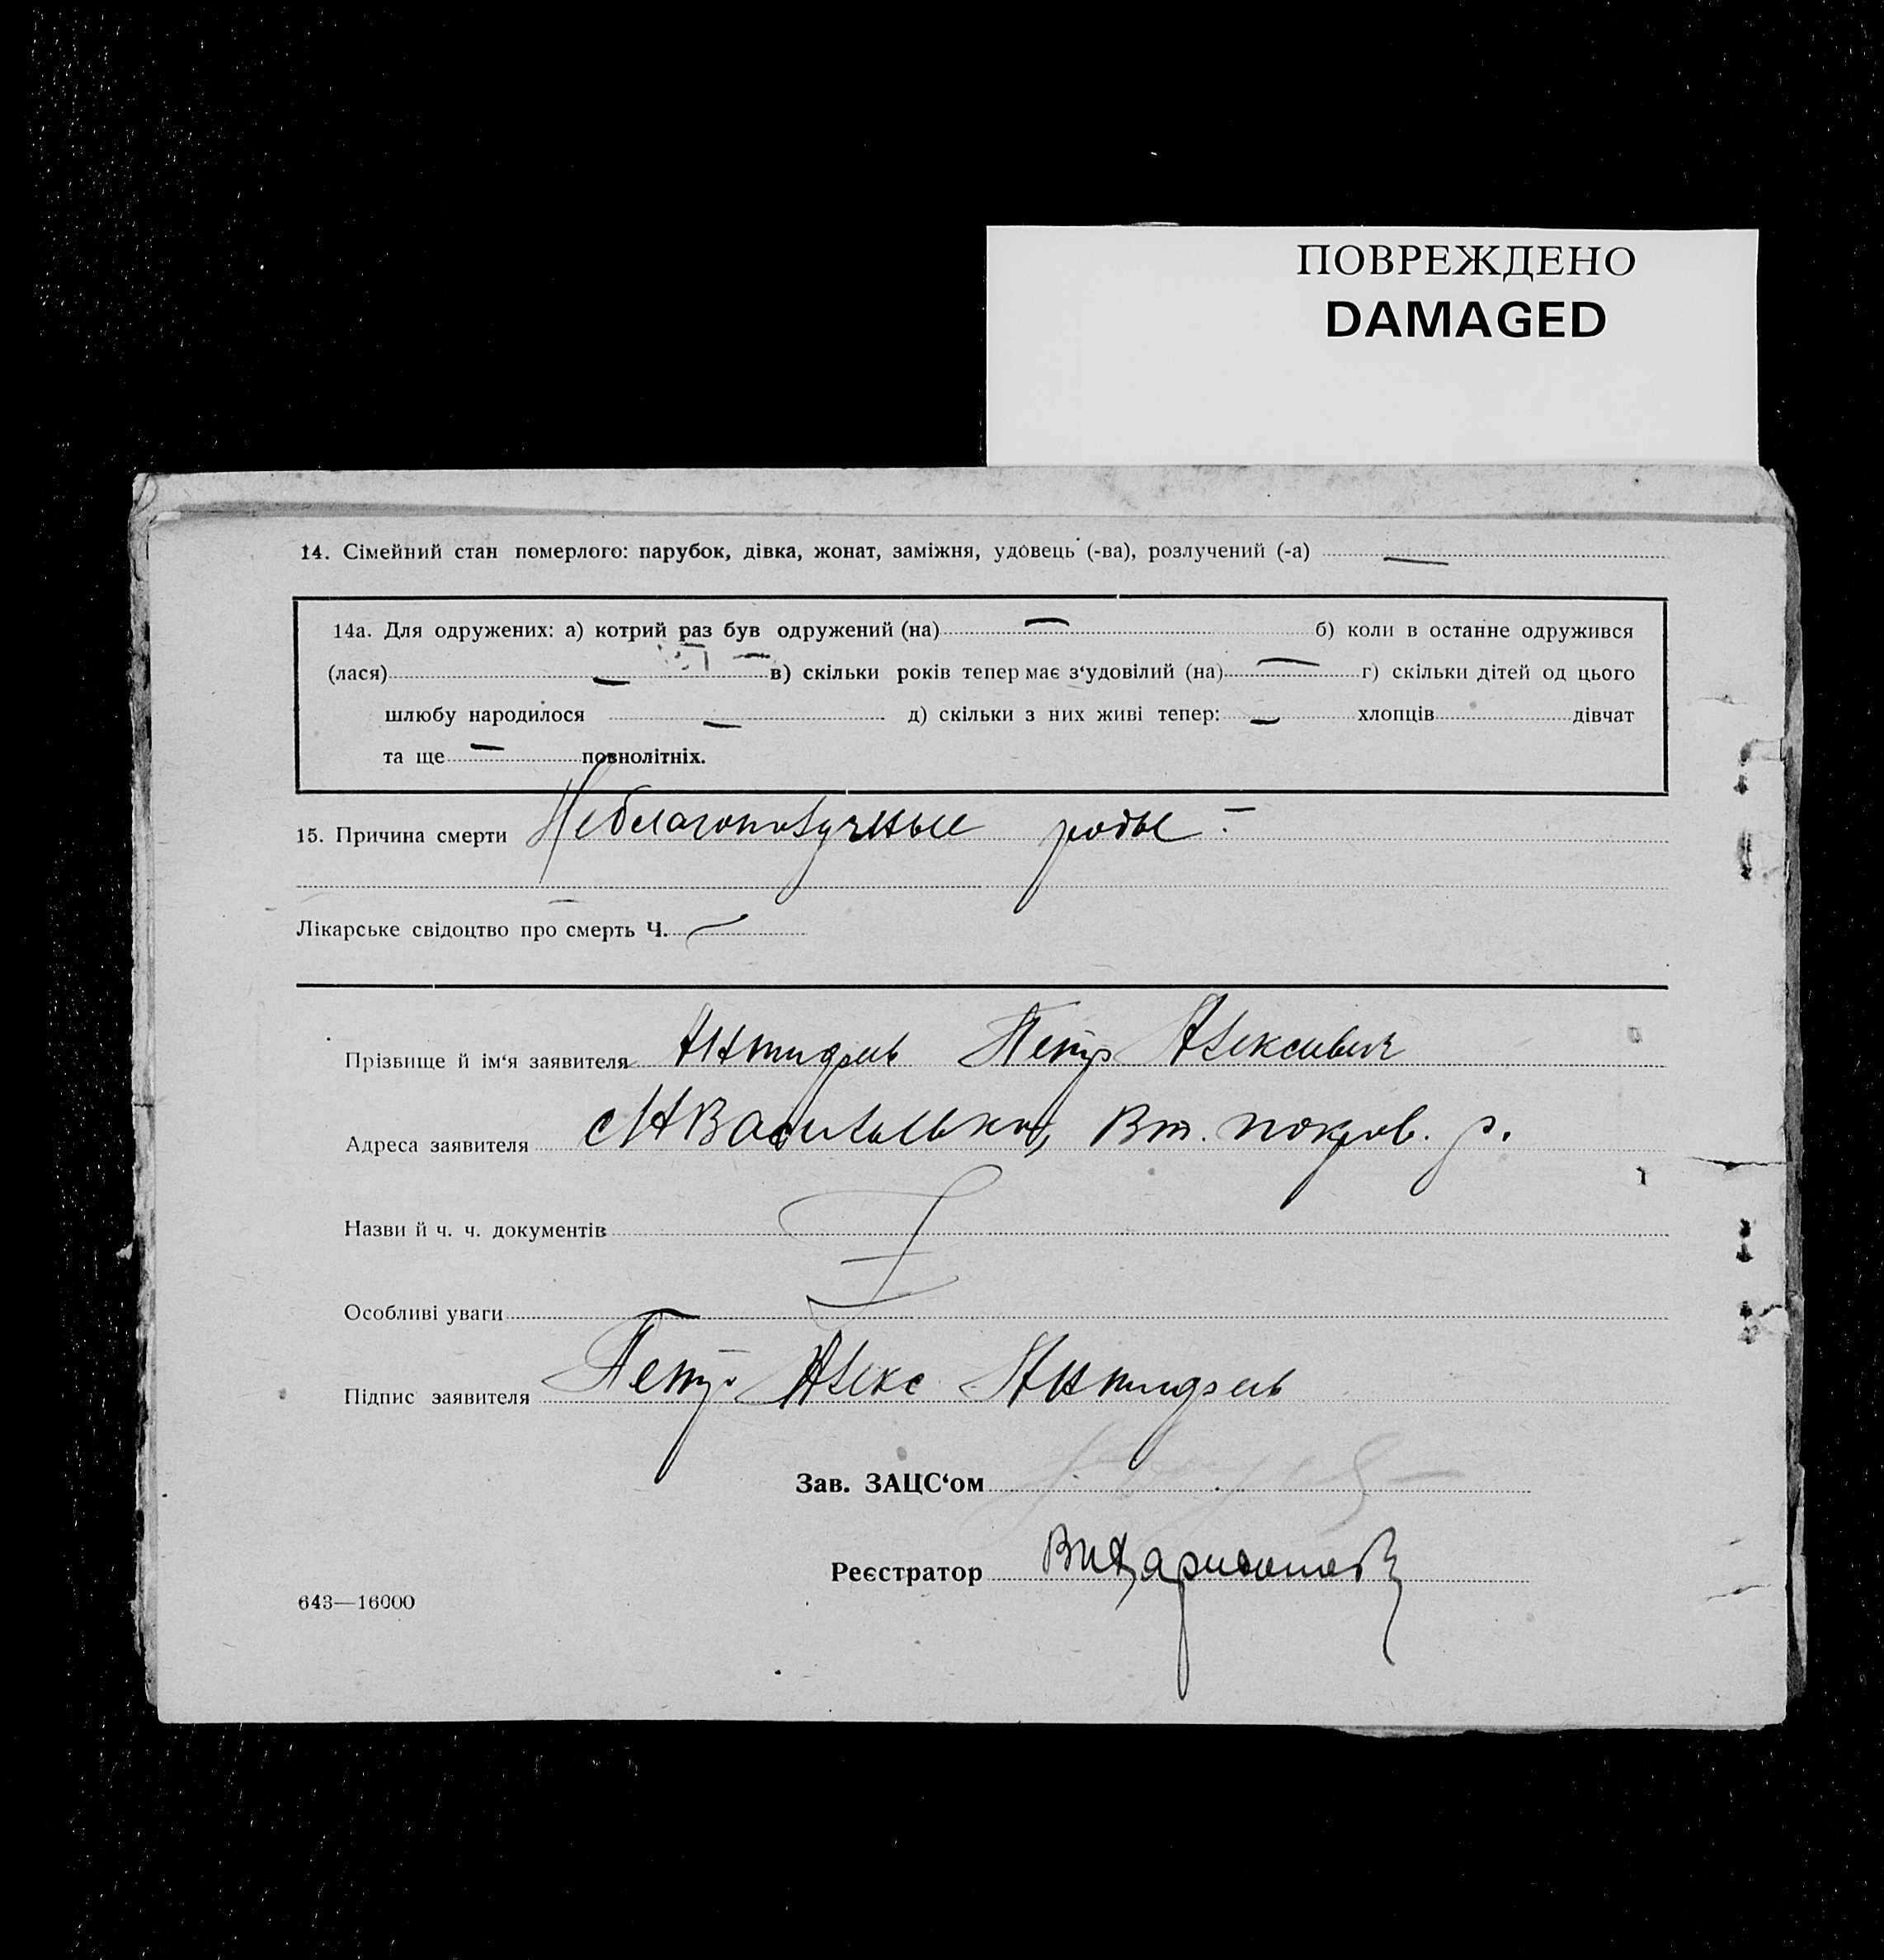 ПОВРЕЖДЕНО
DAMAGED
14. Сімейний стан померлого: парубок, дівка, жонат, заміжня, удовець (-ва), розлучений (-а) —
14а. Для одружених: а) котрий раз був одружений (на) — б) коли в останне одружився
(лася) — в) скільки років тепер має з‘удовілий (на) — г) скільки дітей од цього
шлюбу народилося — д) скільки з них живі тепер: — хлопців дівчат
та ще — повнолітніх.
15. Причина смерти Неблагополучные роды —
Лікарське свідоцтво про смерть Ч. —
Прізвище й ім‘я заявителя Петр Алексеевич
Адреса заявителя Вт. покров. р.
Назви й ч. ч. документів
Особливі уваги
Підпис заявителя Петр Алекс
Зав. ЗАЦС‘ом
Реєстратор
643—16000